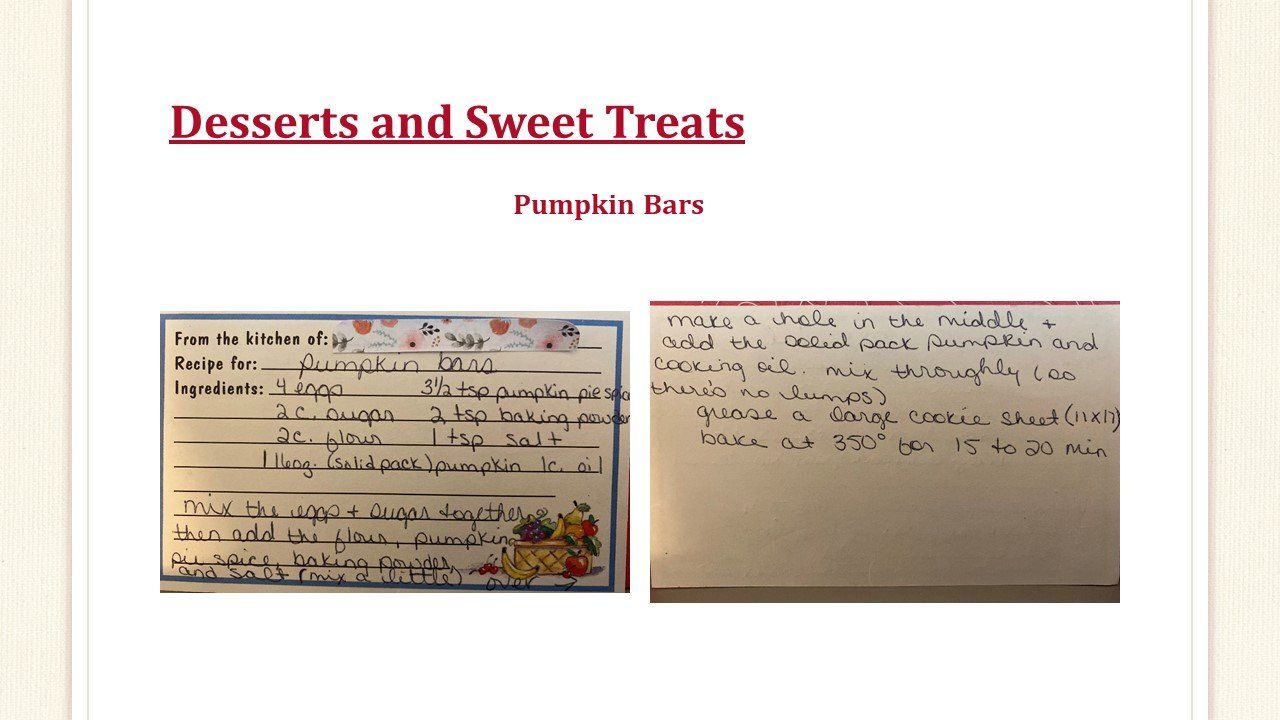 Desserts and Sweet Treats
Pumpkin Bars
From the kitchen of:
Recipe for: Pumpkin bars
Ingredients: 4 eggs 3 1/2 tsp pumpkin pie spice
2 c. sugar 2 tsp baking powder
2c. flour 1 tsp salt
1 16oz. (solid pack) pumpkin 1c. oil
mix the eggs + sugar together
then add the flour, pumpkin
pie spice, baking powder,
and salt (mix a little) over →
make a hole in the middle +
add the solid pack pumpkin and
cooking oil. mix throughly (so
there's no lumps)
grease a large cookie sheet (11x17)
bake at 350° for 15 to 20 min